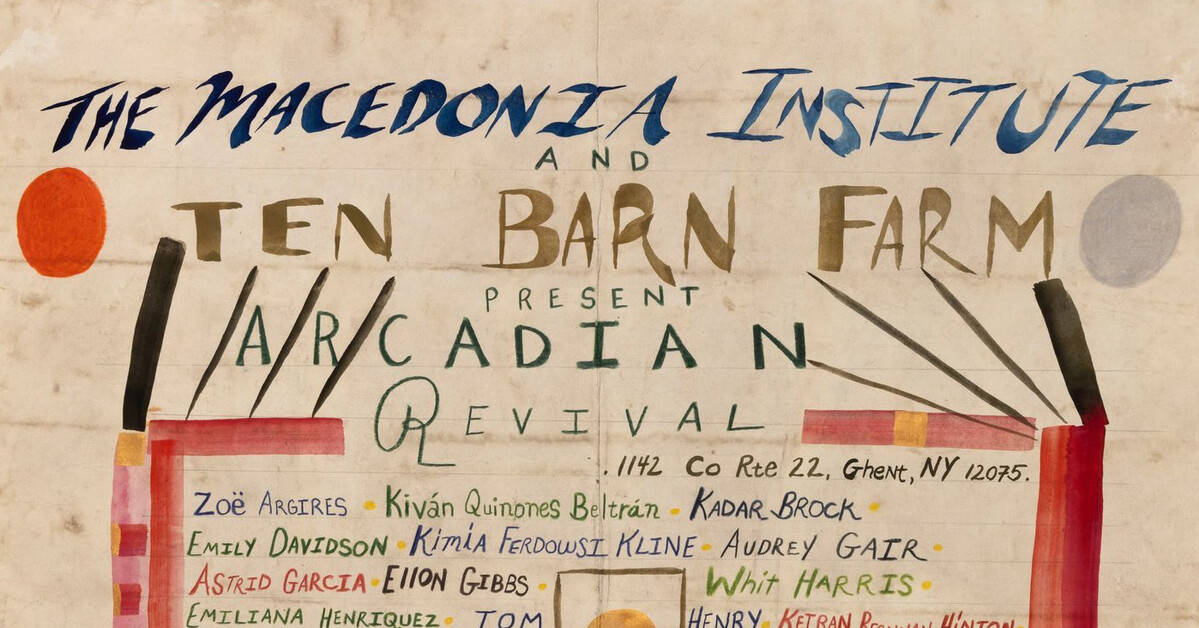 THE MACEDONIA INSTITUTE
AND
TEN BARN FARM
PRESENT
ARCADIAN
REVIVAL
. 1142 Co Rte 22, Ghent, NY 12075.
ZOË ARGIRES • Kiván Quinones Beltrán • KADAR BROCK •
EMILY DAVIDSON • KIMIA FERDOWSI KLINE • AUDREY GAIR •
ASTRID GARCIA • EllON GIBBS • Whit HARRIS •
EMILIANA HENRIQUEZ • TOM HENRY • HINTON